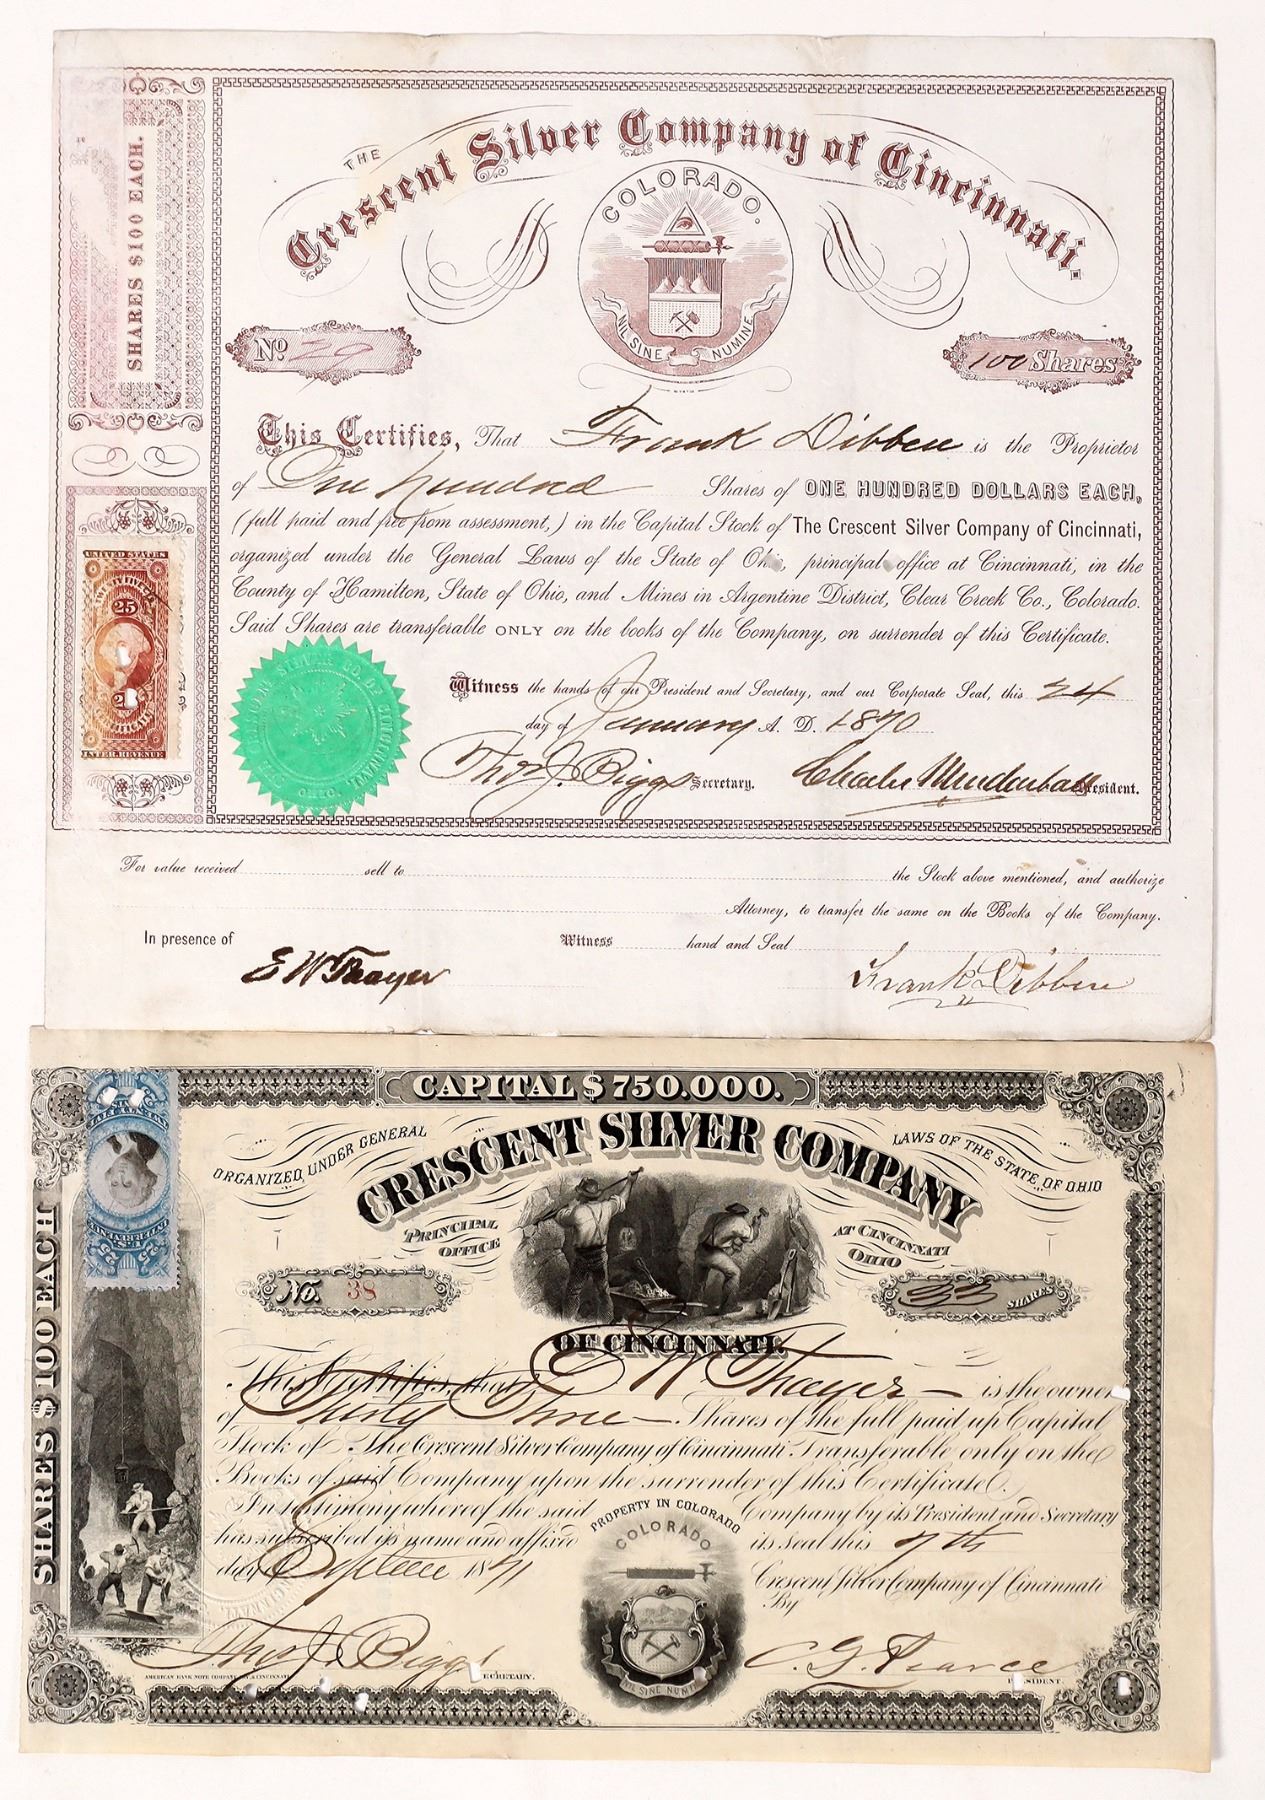 SHARES $100 EACH.
THE
Crescent Silver Company of Cincinnati.
COLORADO.
NIL SINE NUMINE
No. 20
100 Shares
This Certifies, That Frank Dibben is the Proprietor
of One hundred Shares of ONE HUNDRED DOLLARS EACH,
(full paid and free from assessment,) in the Capital Stock of The Crescent Silver Company of Cincinnati,
organized under the General Laws of the State of Ohio, principal office at Cincinnati, in the
County of Hamilton, State of Ohio, and Mines in Argentine District, Clear Creek Co., Colorado.
Said Shares are transferable ONLY on the books of the Company, on surrender of this Certificate.
UNITED STATES
25
INTER. REVENUE
Witness the hands of our President and Secretary, and our Corporate Seal, this 24
day of January A. D. 1870
Thos J. Biggs Secretary. Charles Mendenhall President.
THE CRESCENT SILVER CO. OF CINCINNATI.
OHIO.
For value received sell to the Stock above mentioned, and authorize
Attorney, to transfer the same on the Books of the Company.
In presence of Witness hand and Seal
E W Thayer
Frank Dibben
CAPITAL $750.000.
ORGANIZED, UNDER GENERAL LAWS OF THE STATE, OF OHIO
CRESCENT SILVER COMPANY
PRINCIPAL OFFICE
AT CINCINNATI OHIO
No. 38
33 SHARES
OF CINCINNATI.
SHARES $100 EACH
This Certifies, that E W Thayer is the owner
of Thirty Three Shares of the full paid up Capital
Stock of The Crescent Silver Company of Cincinnati Transferable only on the
Books of said Company upon the surrender of this Certificate.
In testimony whereof the said Company by its President and Secretary
has subscribed its name and affixed its seal this 7th
day 1871
Crescent Silver Company of Cincinnati
By
PROPERTY IN COLORADO
COLORADO
NIL SINE NUMINE
Thos J. Biggs SECRETARY.
C. G. Pearce PRESIDENT.
AMERICAN BANK NOTE COMPANY, N.Y. & CINCINNATI